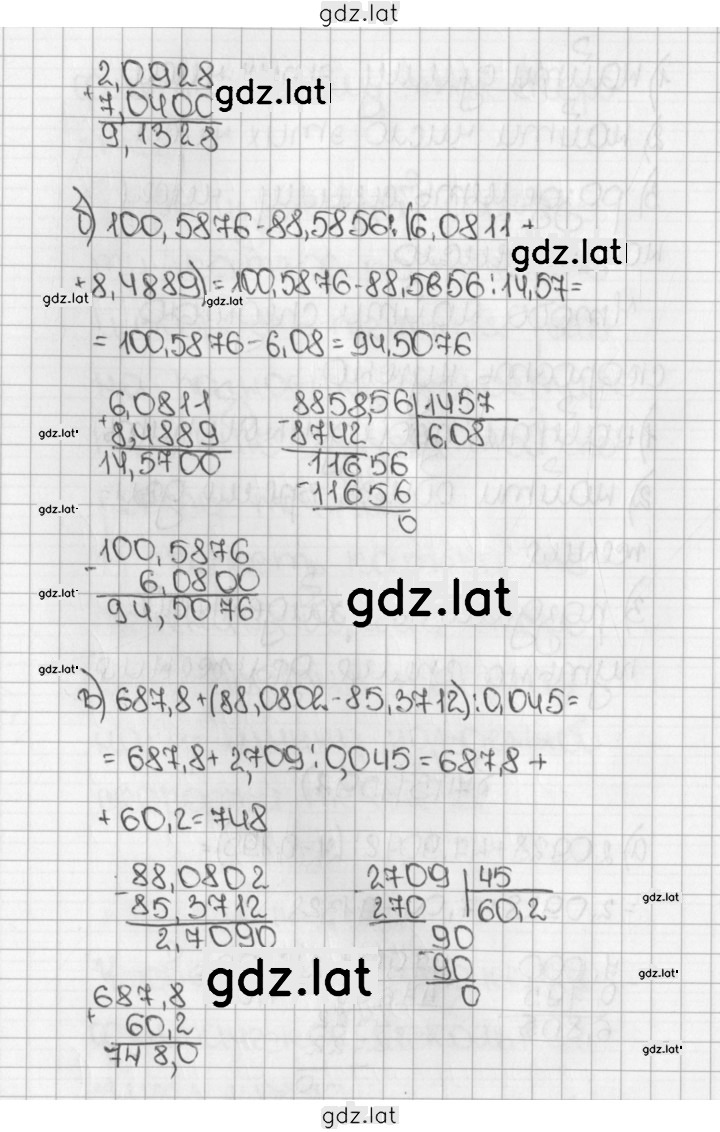 gdz.lat
2,0928
+ 7,0400 gdz.lat
9,1328
б) 100,5876-88,5856:(6,0811 +
gdz.lat
+8,4889)=100,5876-88,5856:14,57=
gdz.lat gdz.lat
= 100,5876-6,08=94,5076
6,0811 885856 1457
gdz.lat + 8,4889 - 8742 6,08
14,5700 11656
gdz.lat - 11656
0
100,5876
- 6,0800
gdz.lat gdz.lat
94,5076
gdz.lat
в) 687,8+(88,0802-85,3712):0,045=
= 687,8+2,709:0,045=687,8+
+60,2=748
88,0802 2709 45
- 85,3712 - 270 60,2 gdz.lat
2,7090 90
gdz.lat - 90 gdz.lat
687,8 0
+ 60,2
748,0 gdz.lat
gdz.lat